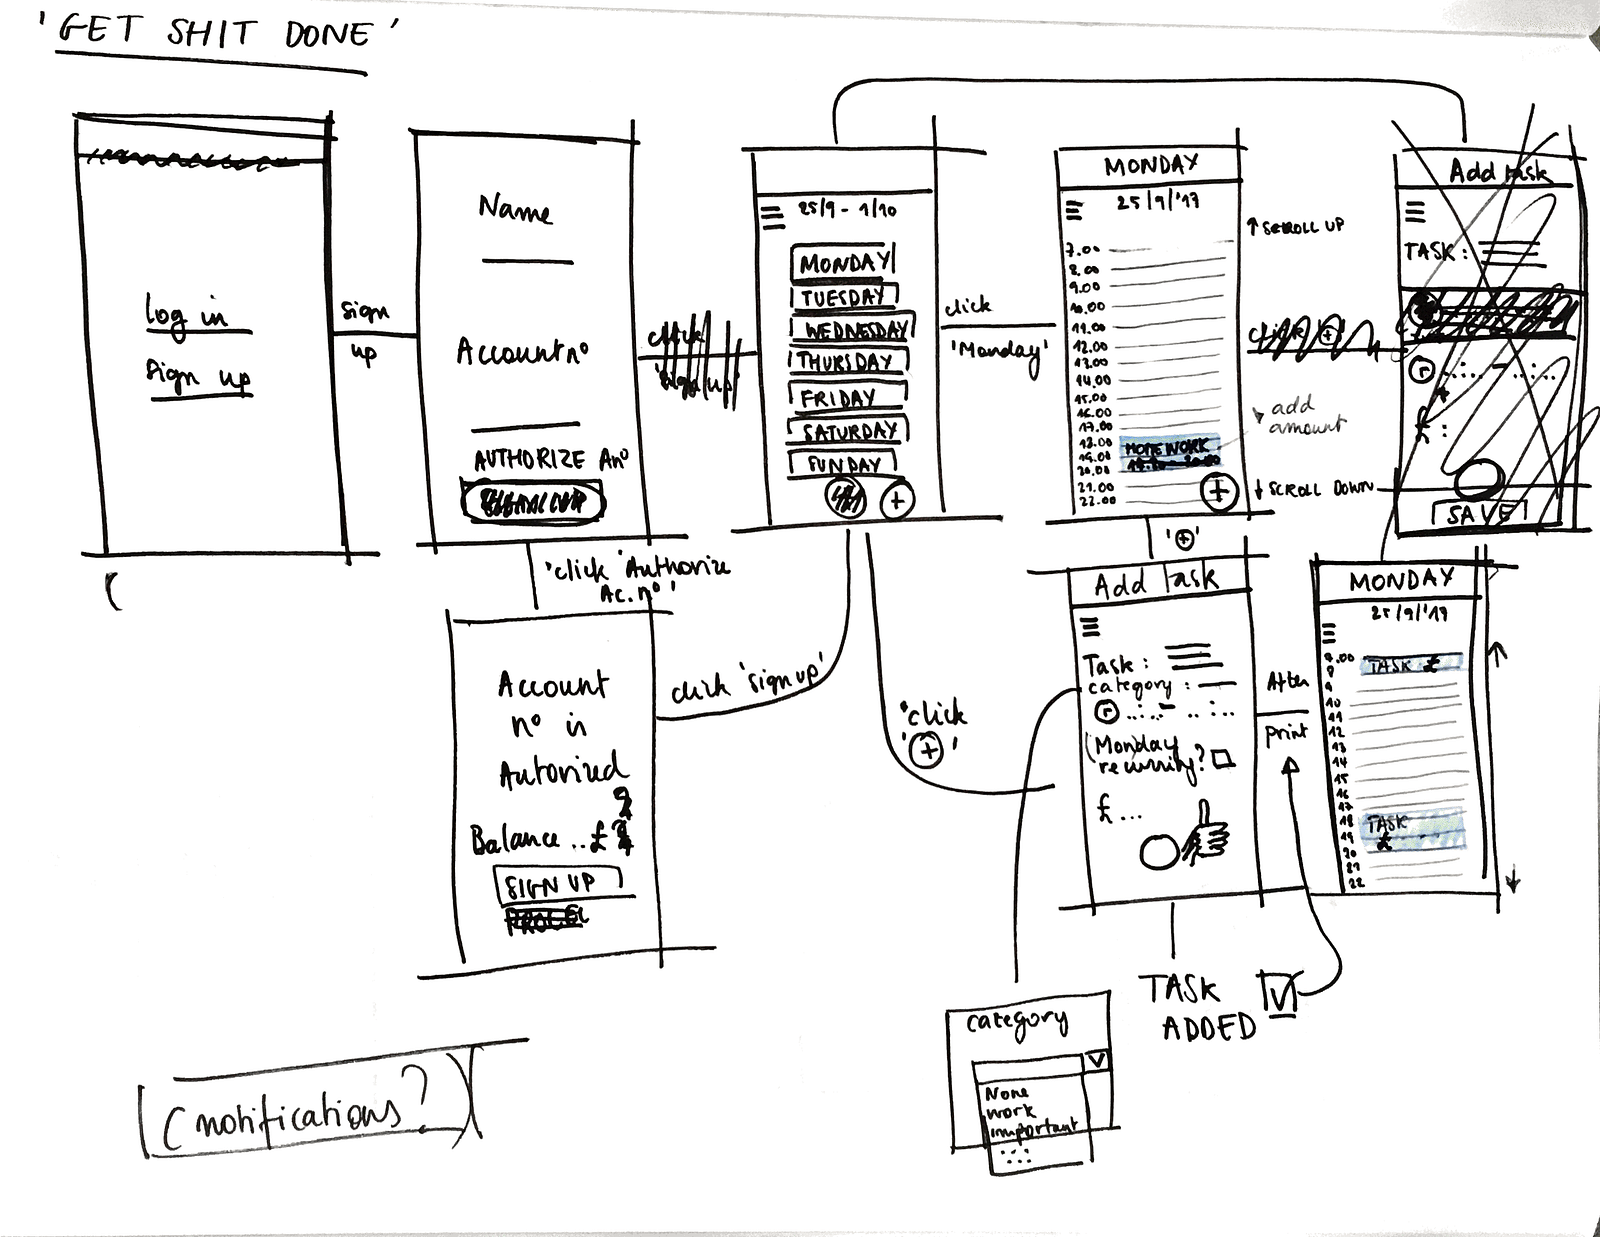 'GET SHIT DONE'
log in
Sign up
sign
up
Name
Account nº
AUTHORIZE Anº
'click 'Authorize
Ac. nº'
Account
nº is
Autorized
Balance .. £
SIGN UP
click 'sign up'
click
25/9 - 1/10
MONDAY
TUESDAY
WEDNESDAY
THURSDAY
FRIDAY
SATURDAY
FUNDAY
+
click
'Monday'
'click
+'
MONDAY
25/9/'17
7.00
8.00
9.00
10.00
11.00
12.00
13.00
14.00
15.00
16.00
17.00
18.00
19.00
20.00
21.00
22.00
HOMEWORK
+
↑ SCROLL UP
add
amount
↓ SCROLL DOWN
'+'
Add task
TASK :
r ..:.. - ..:..
£ :
SAVE
Add Task
Task :
category :
r ..:.. - ..:..
(Monday
recurring?
£ ...
After
print
MONDAY
25/9/'17
7.00
8
9
10
11
12
13
14
15
16
17
18
19
20
21
22
TASK £
TASK
£
TASK
ADDED
category
None
work
important
(notifications?)